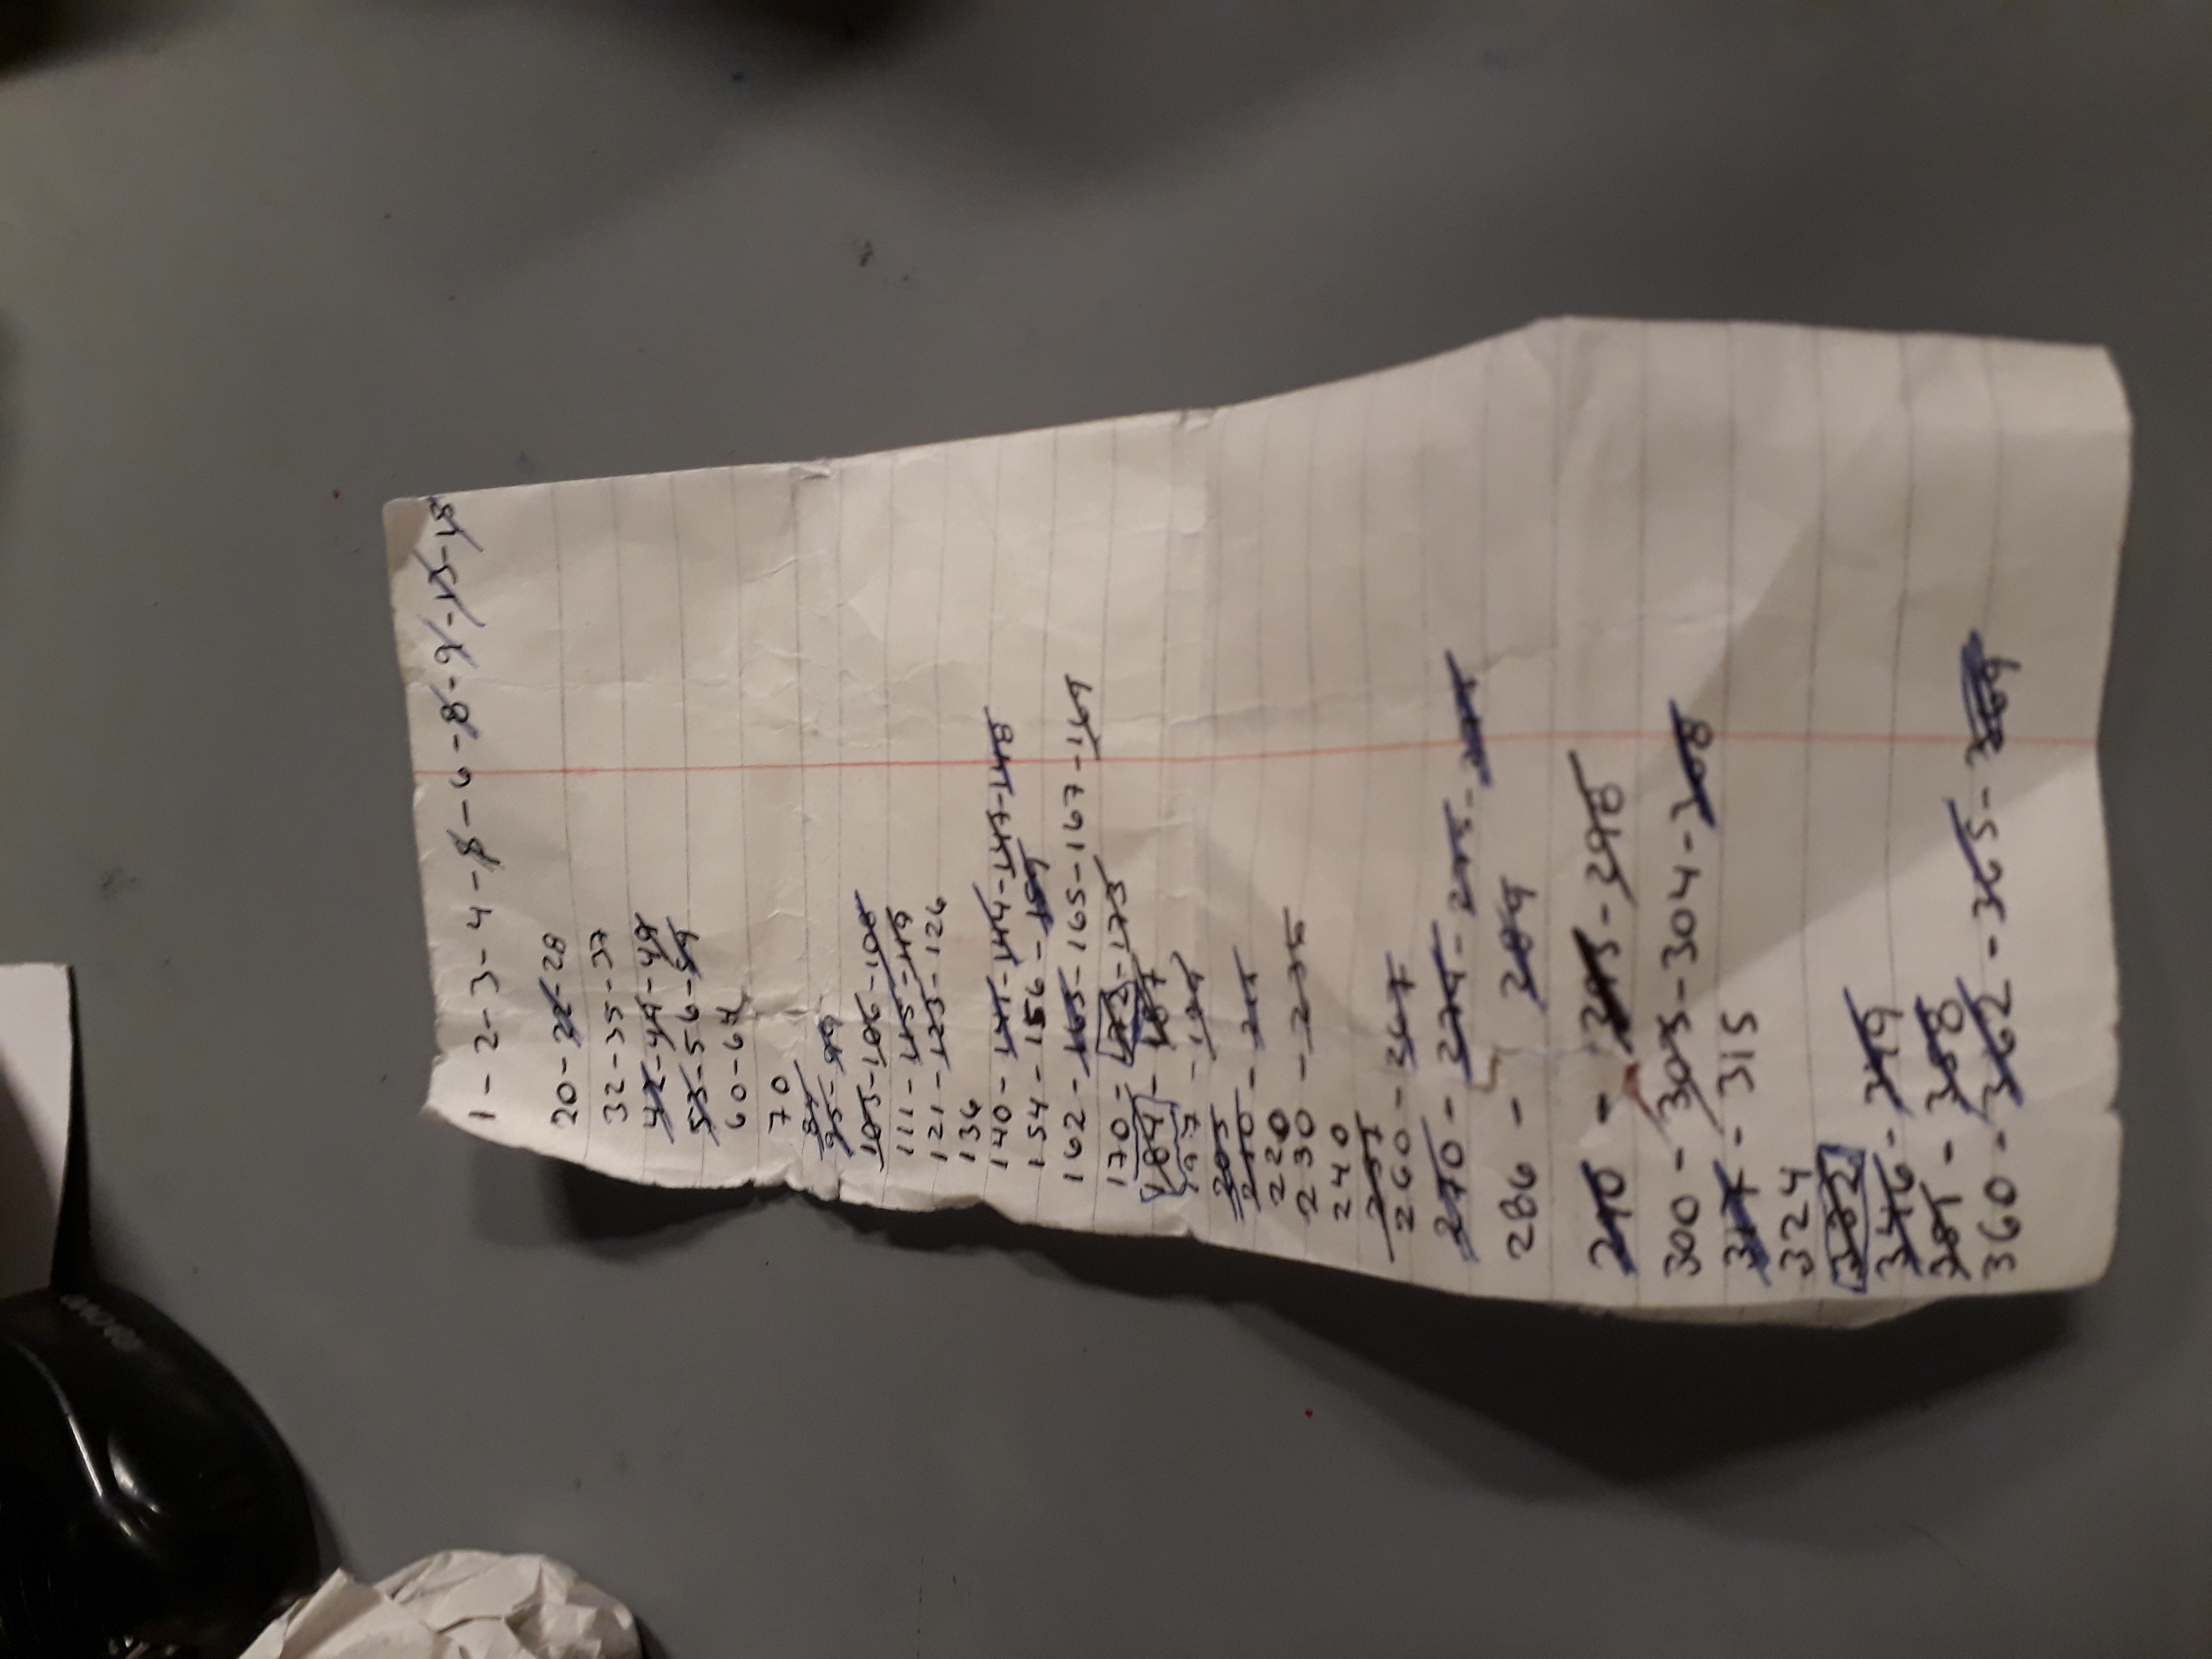 1 - 2 - 3 - 4 - 5 - 6 - 8 - 9 - 13 - 18
20 - 22 - 28
32 - 35 - 37
42 - 44 - 49
53 - 56 - 59
60 - 64
70
84
95 - 99
103 - 106 - 108
111 - 115 - 119
121 - 123 - 126
136
140 - 141 - 144 - 147 - 148
154 - 156 - 159
162 - 163 - 165 - 167 - 169
170 - 172 - 173
184 - 187
197 - 199
205
210 -
220
230 - 236
240
257
260 - 267
270 - 274 - 275 -
286 - 289
290 - 295 - 298
300 - 303 - 304 - 308
317 - 315
324
332
346 - 349
351 - 358
360 - 362 - 365 - 369